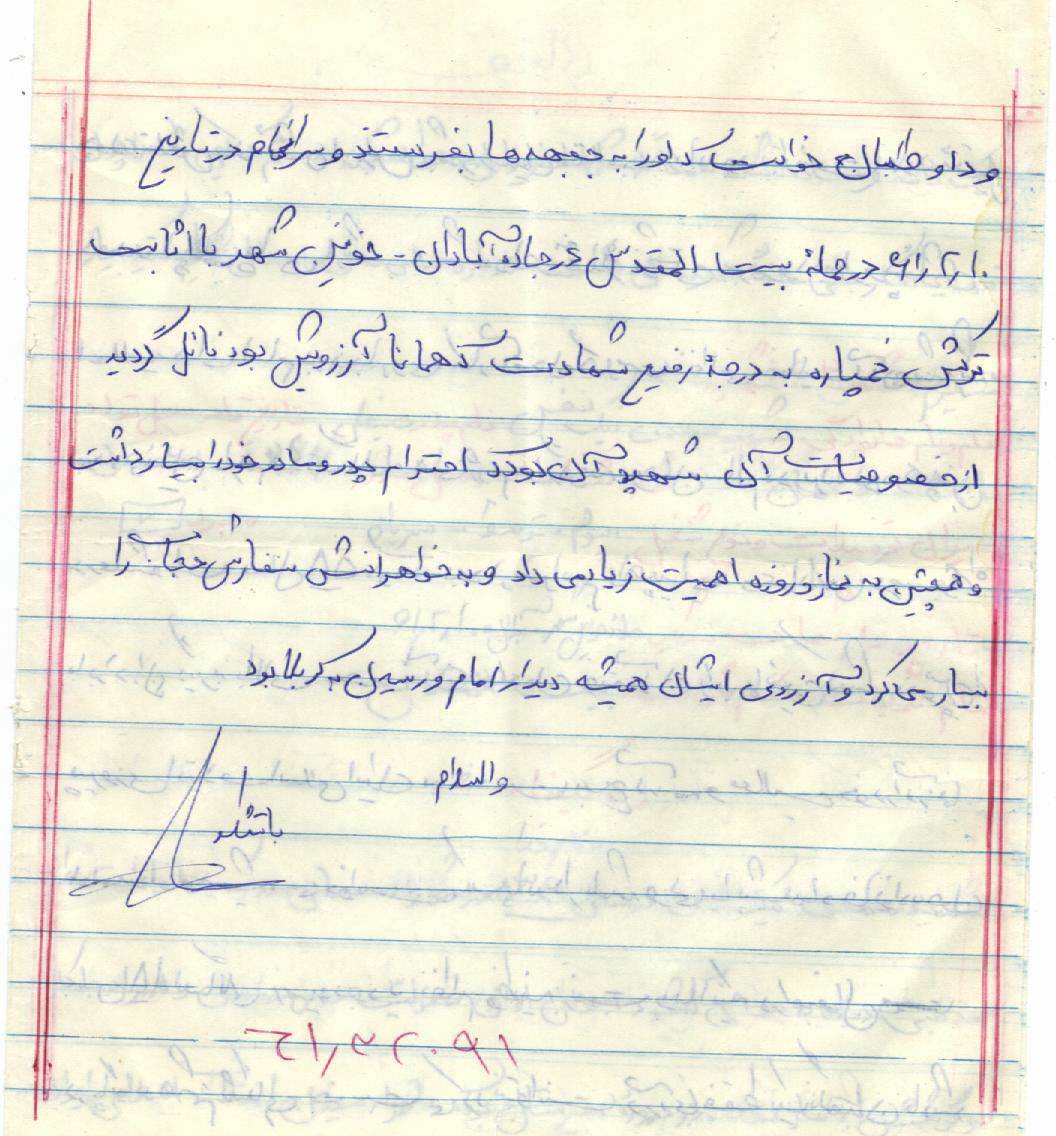 و داوطلبانه خواست که او را به جبهه ها بفرستند و سرانجام در تاریخ
۶۱٫۲٫۱۰ در حملهٔ بیت المقدس در جادهٔ آبادان - خونین شهر با اثابت
ترکش خمپاره به درجهٔ رفیع شهادت که همانا آرزویش بود نائل گردید
از خصوصیات آن شهید آن بود که احترام پدر و مادر خود را بسیار داشت
و همچنین به نماز و روزه اهمیت زیادی می داد و به خواهرانش سفارش حجاب را
بسیار می کرد و آرزوی ایشان همیشه دیدار امام و رسیدن به کربلا بود
والسلام
باتشکر